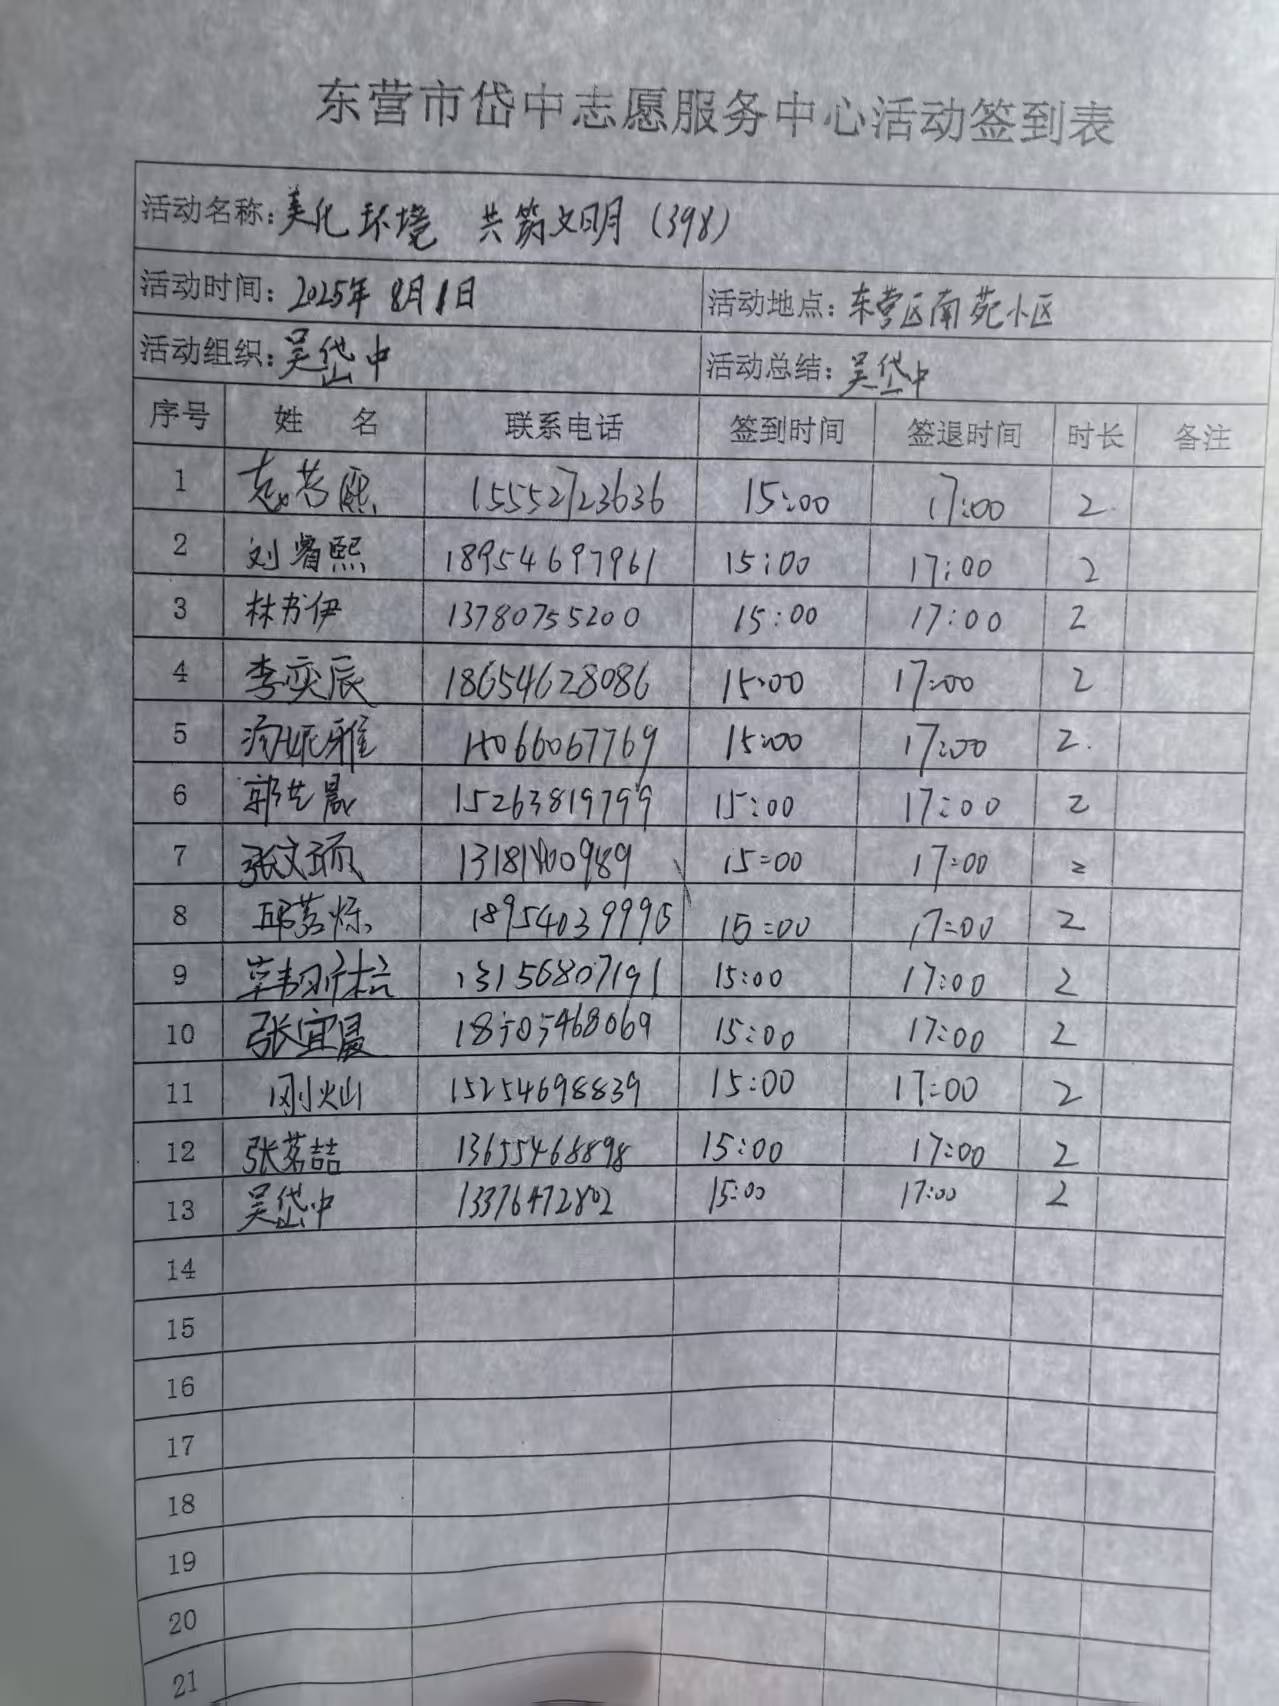 东营市岱中志愿服务中心活动签到表
活动名称：美化环境 共筑文明（398）
活动时间：2025年8月1日 活动地点：东营区南苑小区
活动组织：吴岱中 活动总结：吴岱中
序号 姓 名 联系电话 签到时间 签退时间 时长 备注
1 15552723636 15:00 17:00 2
2 刘睿熙 18954697961 15:00 17:00 2
3 林书伊 13780755200 15:00 17:00 2
4 李奕辰 18654628086 15:00 17:00 2
5 15066067769 15:00 17:00 2
6 15263819799 15:00 17:00 2
7 张文 15:00 17:00 2
8 邱茗烁 18954039995 15:00 17:00 2
9 13156807191 15:00 17:00 2
10 张宜晨 18505468069 15:00 17:00 2
11 15254698839 15:00 17:00 2
12 张茗喆 13655468898 15:00 17:00 2
13 吴岱中 13376472802 15:00 17:00 2
14
15
16
17
18
19
20
21